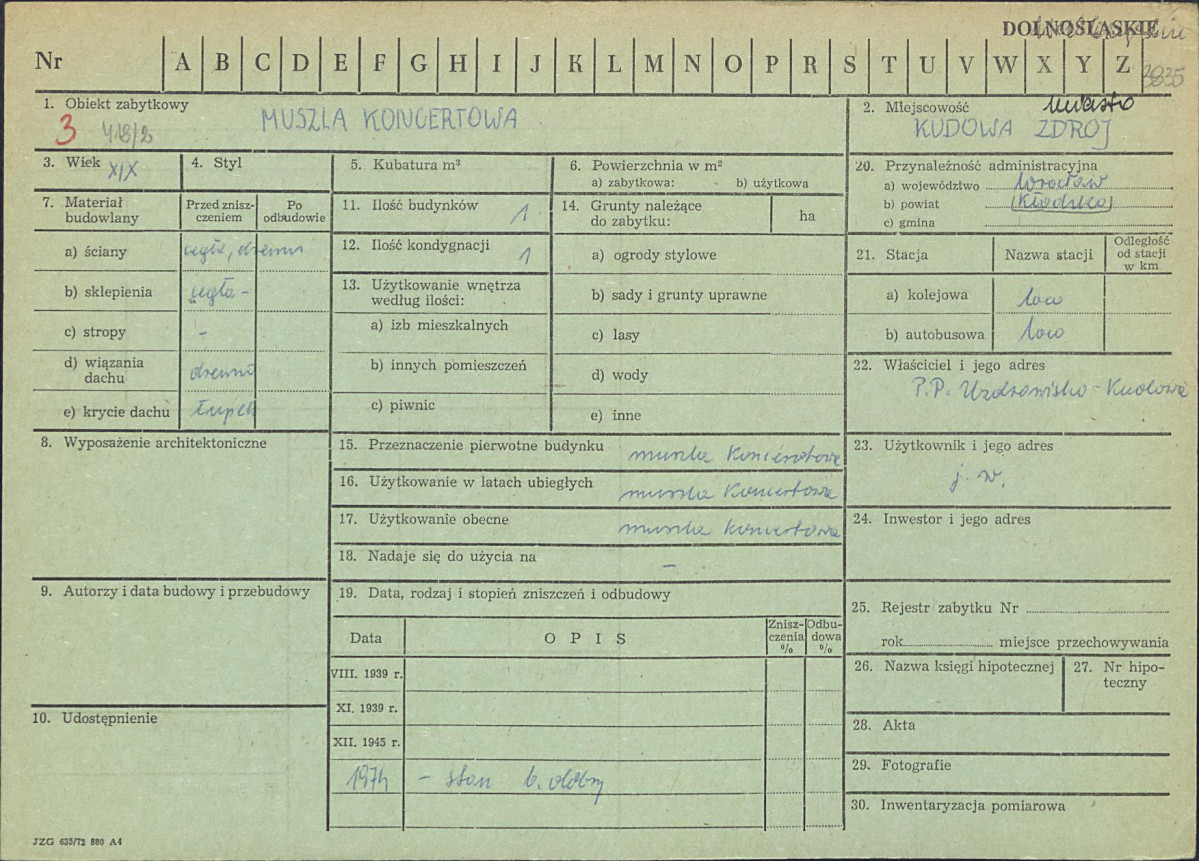 DOLNOŚLĄSKIE
Nr A B C D E F G H I J K L M N O P R S T U V W X Y Z
3835
1. Obiekt zabytkowy
3 418/2
MUSZLA KONCERTOWA
2. Miejscowość miasto
KUDOWA ZDROJ
3. Wiek XIX
4. Styl
5. Kubatura m³
6. Powierzchnia w m²
a) zabytkowa: b) użytkowa
20. Przynależność administracyjna
a) województwo Wrocław
b) powiat (Kłodzko)
c) gmina
7. Materiał
budowlany
Przed znisz-
czeniem
Po
odbudowie
a) ściany cegła, drewno
b) sklepienia cegła -
c) stropy -
d) wiązania
dachu drewno
e) krycie dachu łupek
11. Ilość budynków 1
12. Ilość kondygnacji 1
13. Użytkowanie wnętrza
według ilości:
a) izb mieszkalnych
b) innych pomieszczeń
c) piwnic
14. Grunty należące
do zabytku:
ha
a) ogrody stylowe
b) sady i grunty uprawne
c) lasy
d) wody
e) inne
21. Stacja
Nazwa stacji
Odległość
od stacji
w km
a) kolejowa loco
b) autobusowa loco
22. Właściciel i jego adres
P.P. Uzdrowisko - Kudowa
8. Wyposażenie architektoniczne
15. Przeznaczenie pierwotne budynku muszla koncertowa
16. Użytkowanie w latach ubiegłych muszla koncertowa
17. Użytkowanie obecne muszla koncertowa
18. Nadaje się do użycia na -
23. Użytkownik i jego adres
j. w.
24. Inwestor i jego adres
9. Autorzy i data budowy i przebudowy
19. Data, rodzaj i stopień zniszczeń i odbudowy
Data
OPIS
Znisz-
czenia
%
Odbu-
dowa
%
VIII. 1939 r.
XI. 1939 r.
XII. 1945 r.
1974 - stan b. dobry
25. Rejestr zabytku Nr
rok miejsce przechowywania
26. Nazwa księgi hipotecznej
27. Nr hipo-
teczny
10. Udostępnienie
28. Akta
29. Fotografie
30. Inwentaryzacja pomiarowa
JZG 635/72 880 A4